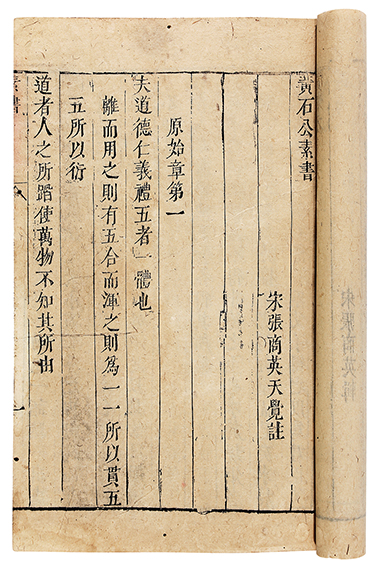 黃石公素書
宋張商英天覺註
原始章第一
夫道德仁義禮五者一體也
離而用之則有五合而渾之則爲一一所以貫五
五所以衍一
道者人之所蹈使萬物不知其所由
素書